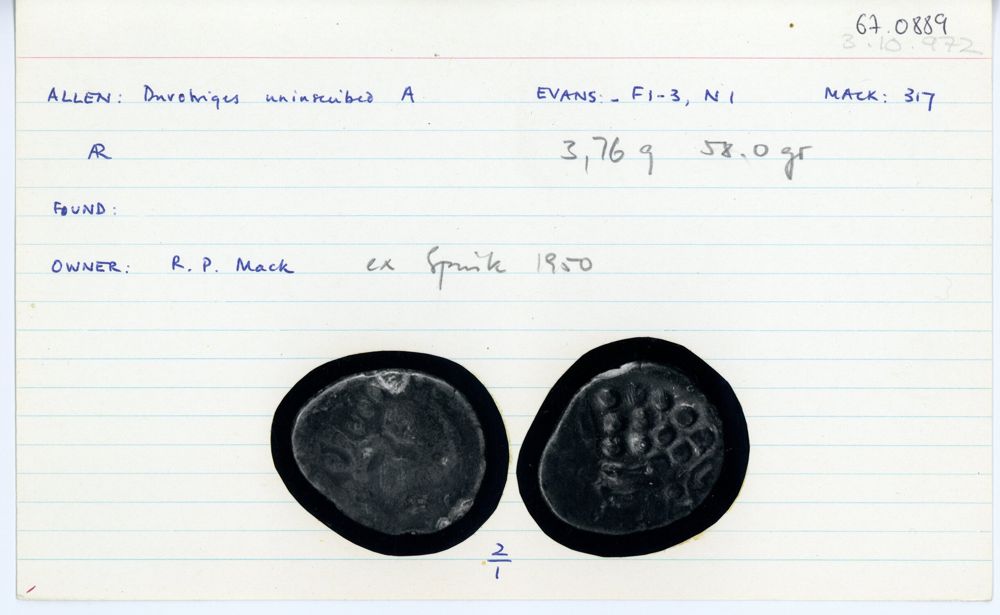 67.0889
3.10.972
ALLEN: Durotriges uninscribed A EVANS:- F1-3, N1 MACK: 317
AR 3,76 g 58.0 gr
FOUND:
OWNER: R. P. Mack ex Spink 1950
2
1